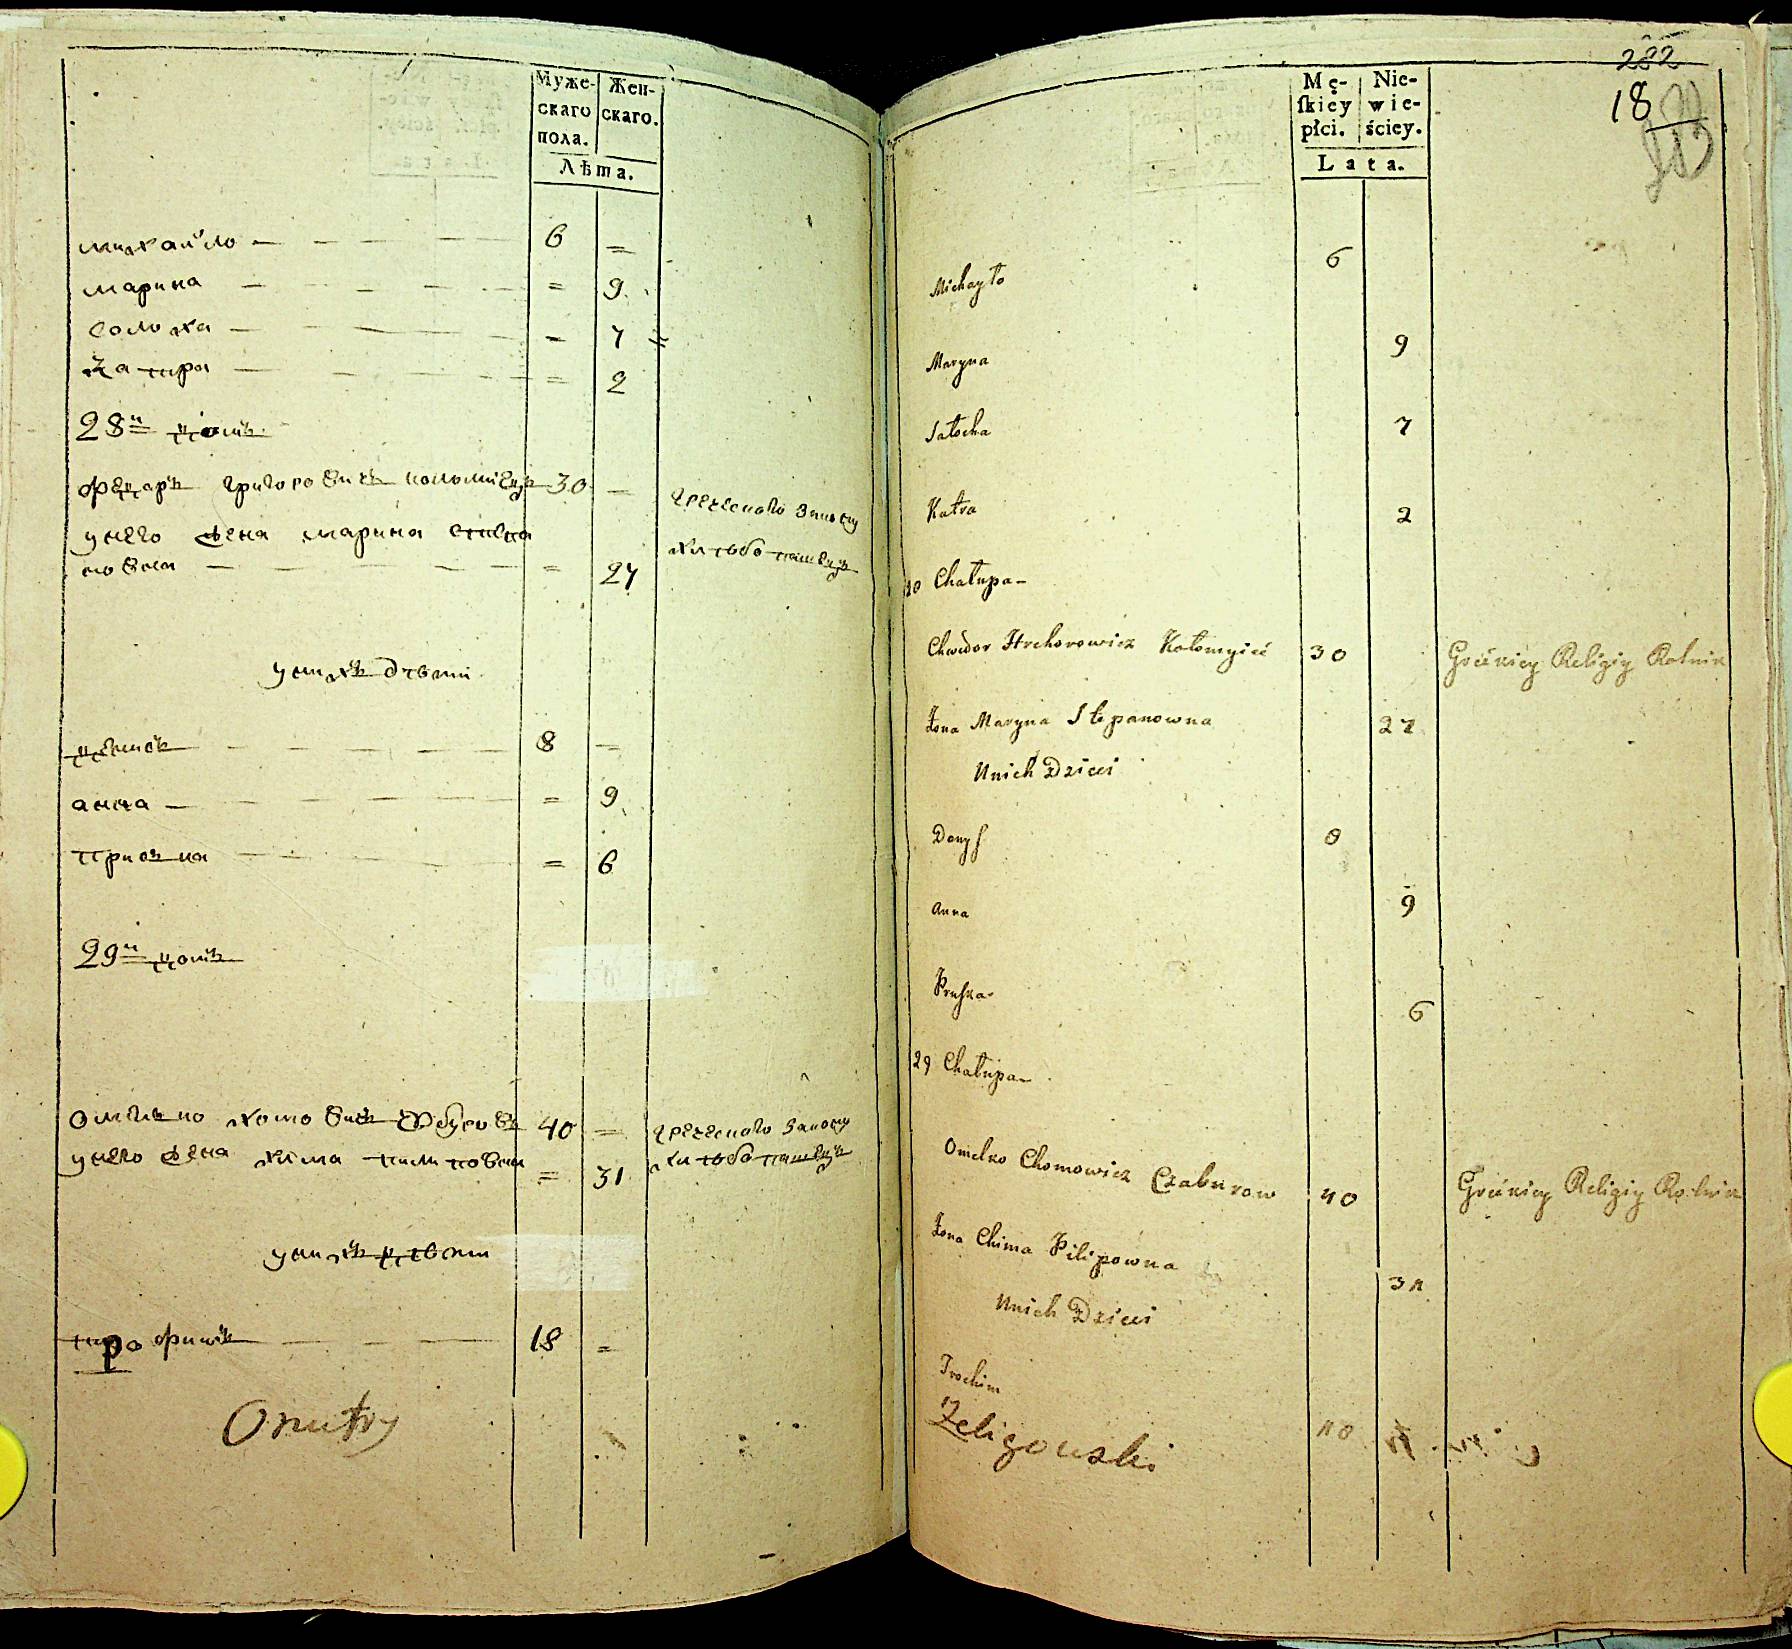 Муже-
скаго
пола.
Жен-
скаго.
Лѣта.
михайло 6 =
марина = 9
солоха - 7
катра = 2
28й домъ
федаръ григоровичъ коломиецъ 30 —
греческого закону
хлѣбопашецъ
унего жена марина степа
новна = 27
унихъ дѣти
денисъ 8 —
анна = 9
приська = 6
29й домъ
Омелько хомовичъ 40 =
греческого закону
хлѣбопашецъ
унего жена хима пилиповна = 31
унихъ дѣти
трофимъ 18 =
Onufry
282
18
Mę-
ſkiey
płci.
Nie-
wie-
ściey.
Lata.
Michayło 6
Maryna 9
Sałocha 7
Katra 2
Chałupa
Chwedor Hrehorowicz Kołomyieć 30 Grećkiey Religiy Rolnik
Żona Maryna Stepanowna 27
Unich Dzieci
Denys 8
Anna 9
Pruska 6
29 Chałupa
Omelko Chomowicz Czaburow 40 Grećkiey Religiy Rolnik
Żona Chima Pilipowna 31
Unich Dzieci
Trochim 18
Zeligowski